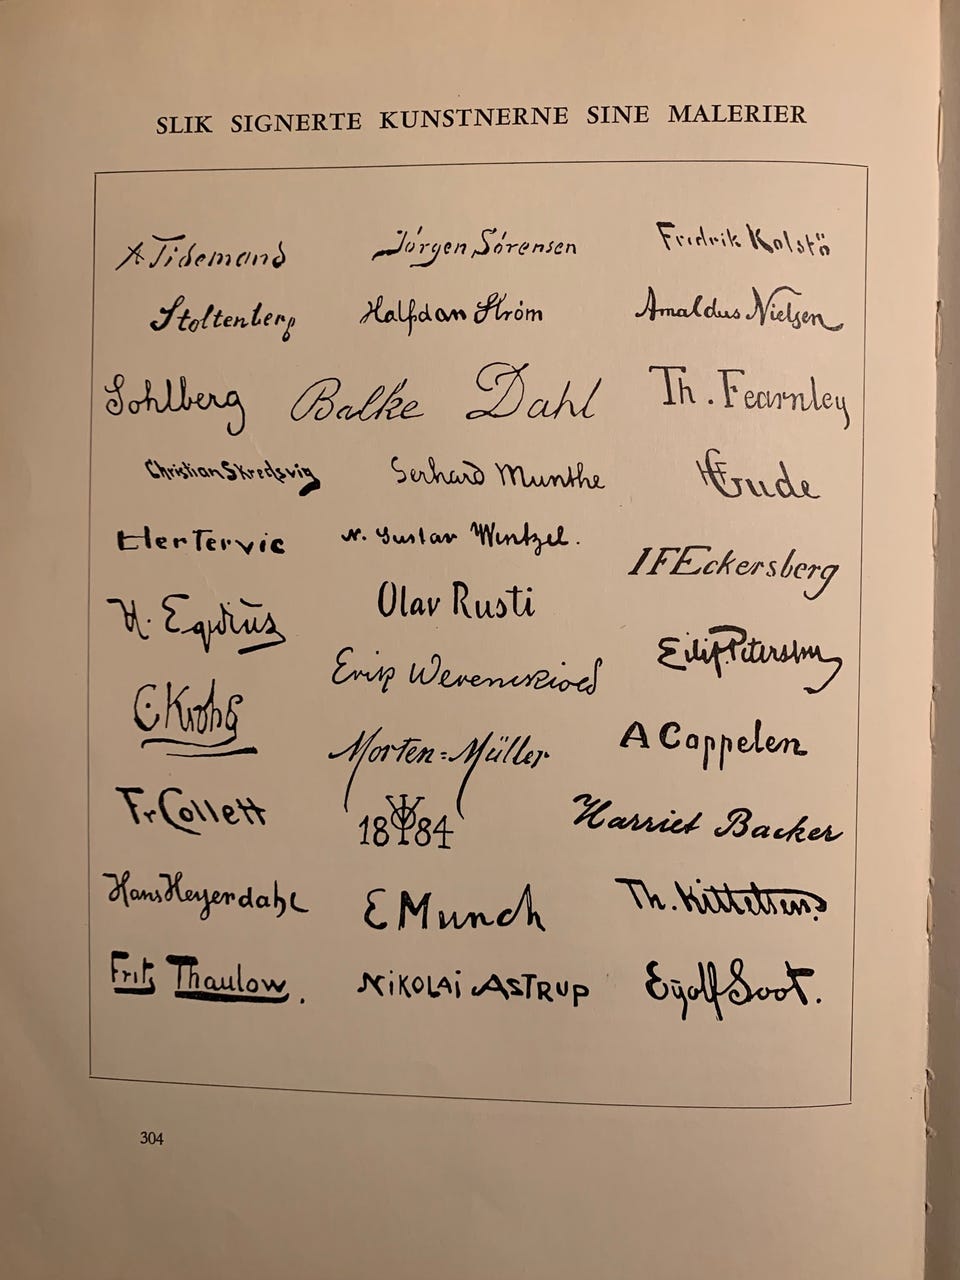 SLIK SIGNERTE KUNSTNERNE SINE MALERIER
A Tidemand
Jörgen Sörensen
Fredrik Kolstö
Stoltenberg
Halfdan Ström
Amaldus Nielsen
Sohlberg
Balke
Dahl
Th. Fearnley
Christian Skredsvig
Gerhard Munthe
HGude
HerTervic
N. Gustav Wentzel.
IFEckersberg
H. Egedius
Olav Rusti
Eilif Peterssen
Erik Werenskiold
C Krohg
Morten=Müller
A Cappelen
Fr Collett
1884
Harriet Backer
Hans Heyerdahl
E Munch
Th. Kittelsen.
Fritz Thaulow.
NiKOLAi ASTRUP
Eyolf Soot.
304